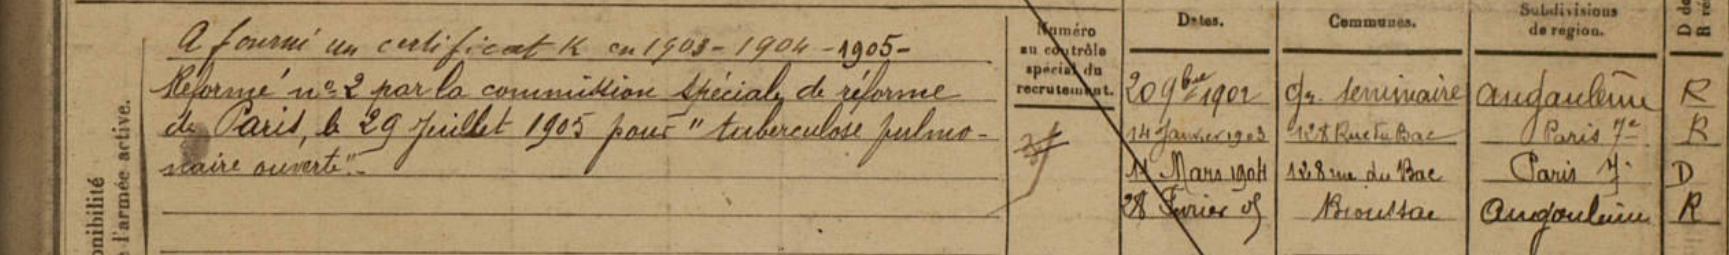 A fourni un certificat K en 1903 - 1904 - 1905 -
Réformé n° 2 par la commission spéciale de réforme
de Paris, le 29 Juillet 1905 pour " tuberculose pulmo-
naire ouverte". -
onibilité
l'armée active.
Numéro
au contrôle
spécial du
recrutement.
Dates. Communes. Subdivisions
de région. D de
R ré
20 9bre 1902 Gr. Séminaire Angoulême R
14 Janvier 1903 128 Rue du Bac Paris 7e R
11 Mars 1904 128 rue du Bac Paris 7. D
28 Février 05 Bioussac Angoulême R